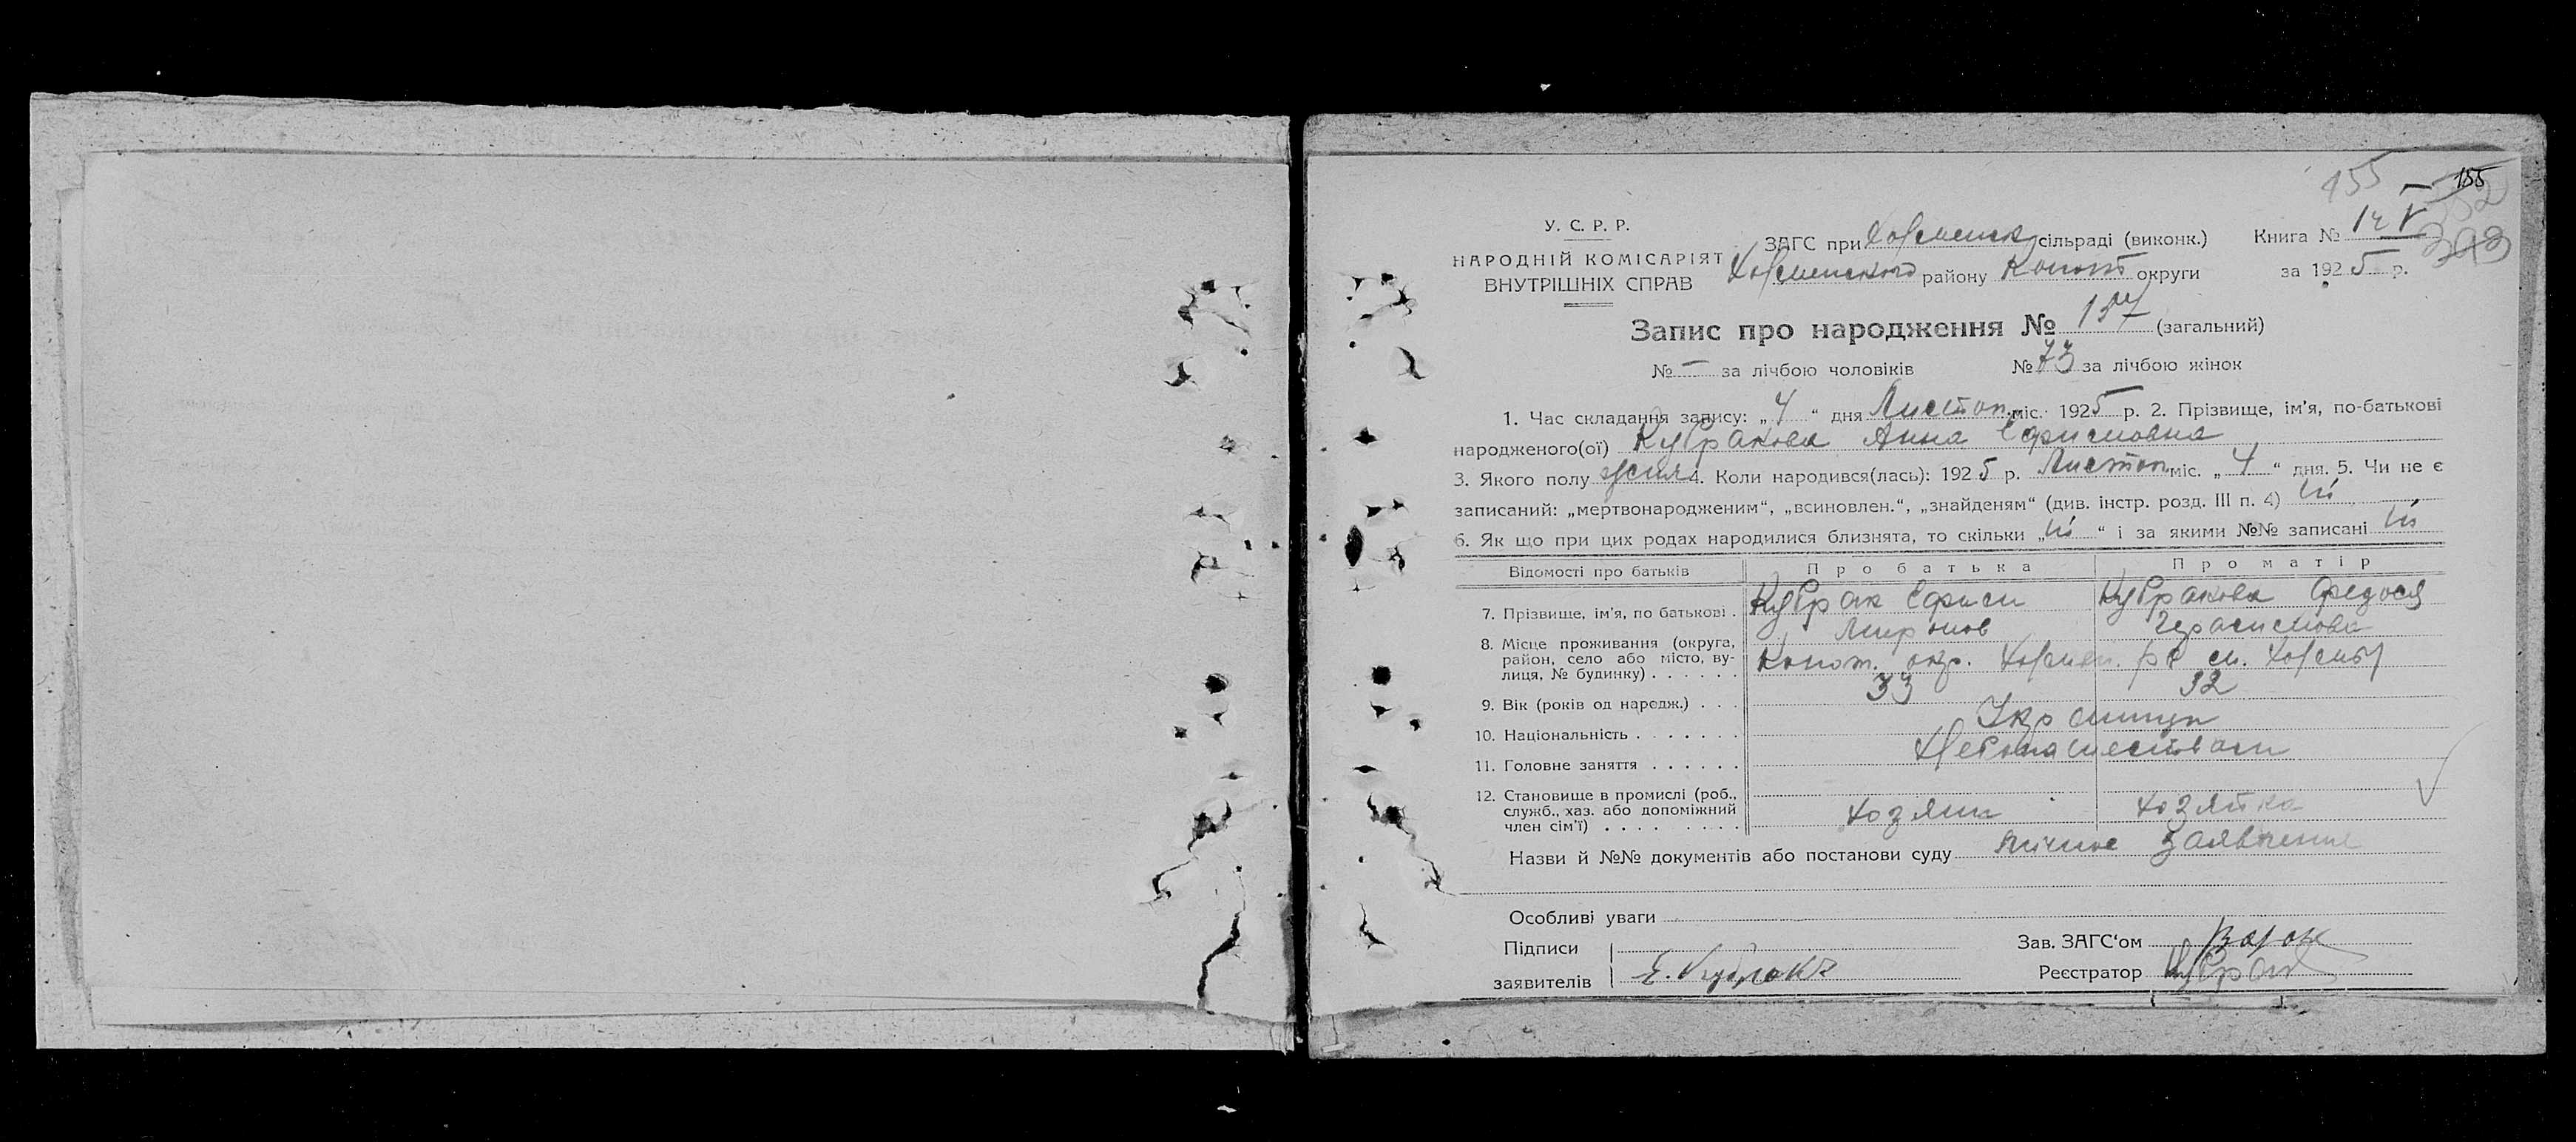 155 155
У. С. Р. Р.
НАРОДНІЙ КОМІСАРІЯТ
ВНУТРІШНІХ СПРАВ
ЗАГС при сільраді (виконк.) Книга №
району Коноп округи за 1925 р.
Запис про народження № 157 (загальний)
№ — за лічбою чоловіків № 73 за лічбою жінок
1. Час складання запису: „4“ дня Листоп міс. 1925 р. 2. Прізвище, ім’я, по-батькові
народженого(ої) Кубракова Анна Ефимовна
3. Якого полу 4. Коли народився(лась): 1925 р. Листоп міс. „4“ дня. 5. Чи не є
записаний: „мертвонародженим“, „всиновлен.“, „знайденям“ (див. інстр. розд. III п. 4) ні
6. Як що при цих родах народилися близнята, то скільки „ні“ і за якими №№ записані ні
Відомості про батьків Про батька Про матір
7. Прізвище, ім’я, по батькові . Кубрак Ефим Кубракова Федося
Миронов Герасимова
8. Місце проживання (округа,
район, село або місто, ву-
лиця, № будинку) . . . . . . Конот. окр.
9. Вік (років од народж.) . . . 33 32
10. Національність . . . . . . .
11. Головне заняття . . . . . . Хлебопашеством
12. Становище в промислі (роб.,
служб., хаз. або допоміжний
член сім’ї) . . . . . . . . хозяин хозяйка
Назви й №№ документів або постанови суду заявление
Особливі уваги
Підписи Зав. ЗАГС‘ом
заявителів Е. Кубракъ Реєстратор Кубрак